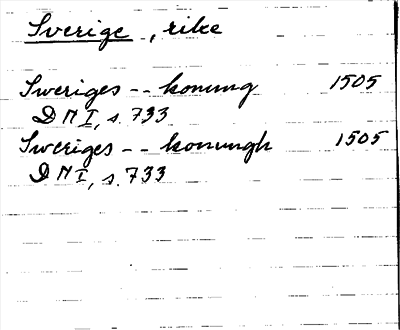 Sverige, rike
Sweriges -- konung 1505
DMI, s. 733
Sweriges -- konungh 1505
DMI, s. 733